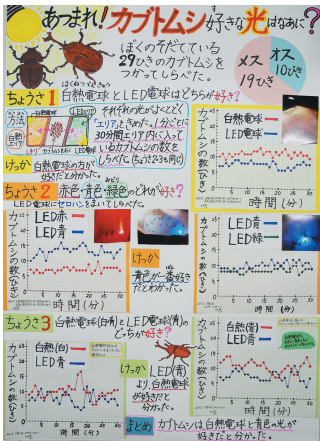 あつまれ! カブトムシ好きな光はなあに?
ぼくのそだてている
29ひきのカブトムシを
つかってしらべた。
メス
19ひき
オス
10ぴき
ちょうさ1 白熱電球とLED電球はどちらが好き?
方法
それぞれの光がよくとどく
エリアをきめた。1分ごとに
30分間エリア内に入って
いるカブトムシの数を
しらべた(ちょうさ2,3も同じ)
けっか 白熱電球の方が
好きだと分かった。
カブトムシの数(ひき)
白熱電球
LED電球
時間(分)
ちょうさ2 赤色・青色・緑色のどれが好き?
LED電球にセロハンをまいてしらべた。
カブトムシの数(ひき)
LED赤
LED青
時間(分)
けっか
青色が一番好き
だとわかった。
カブトムシの数(ひき)
LED青
LED緑
時間(分)
ちょうさ3 白熱電球(青)とLED電球(青)の
どっちが好き?
カブトムシの数(ひき)
白熱(白)
LED青
時間(分)
けっか LED(青)
より、白熱電球
が好きだと
分かった。
カブトムシの数(ひき)
白熱(青)
LED青
時間(分)
まとめ カブトムシは白熱電球と青色の光が
好きだと分かった。